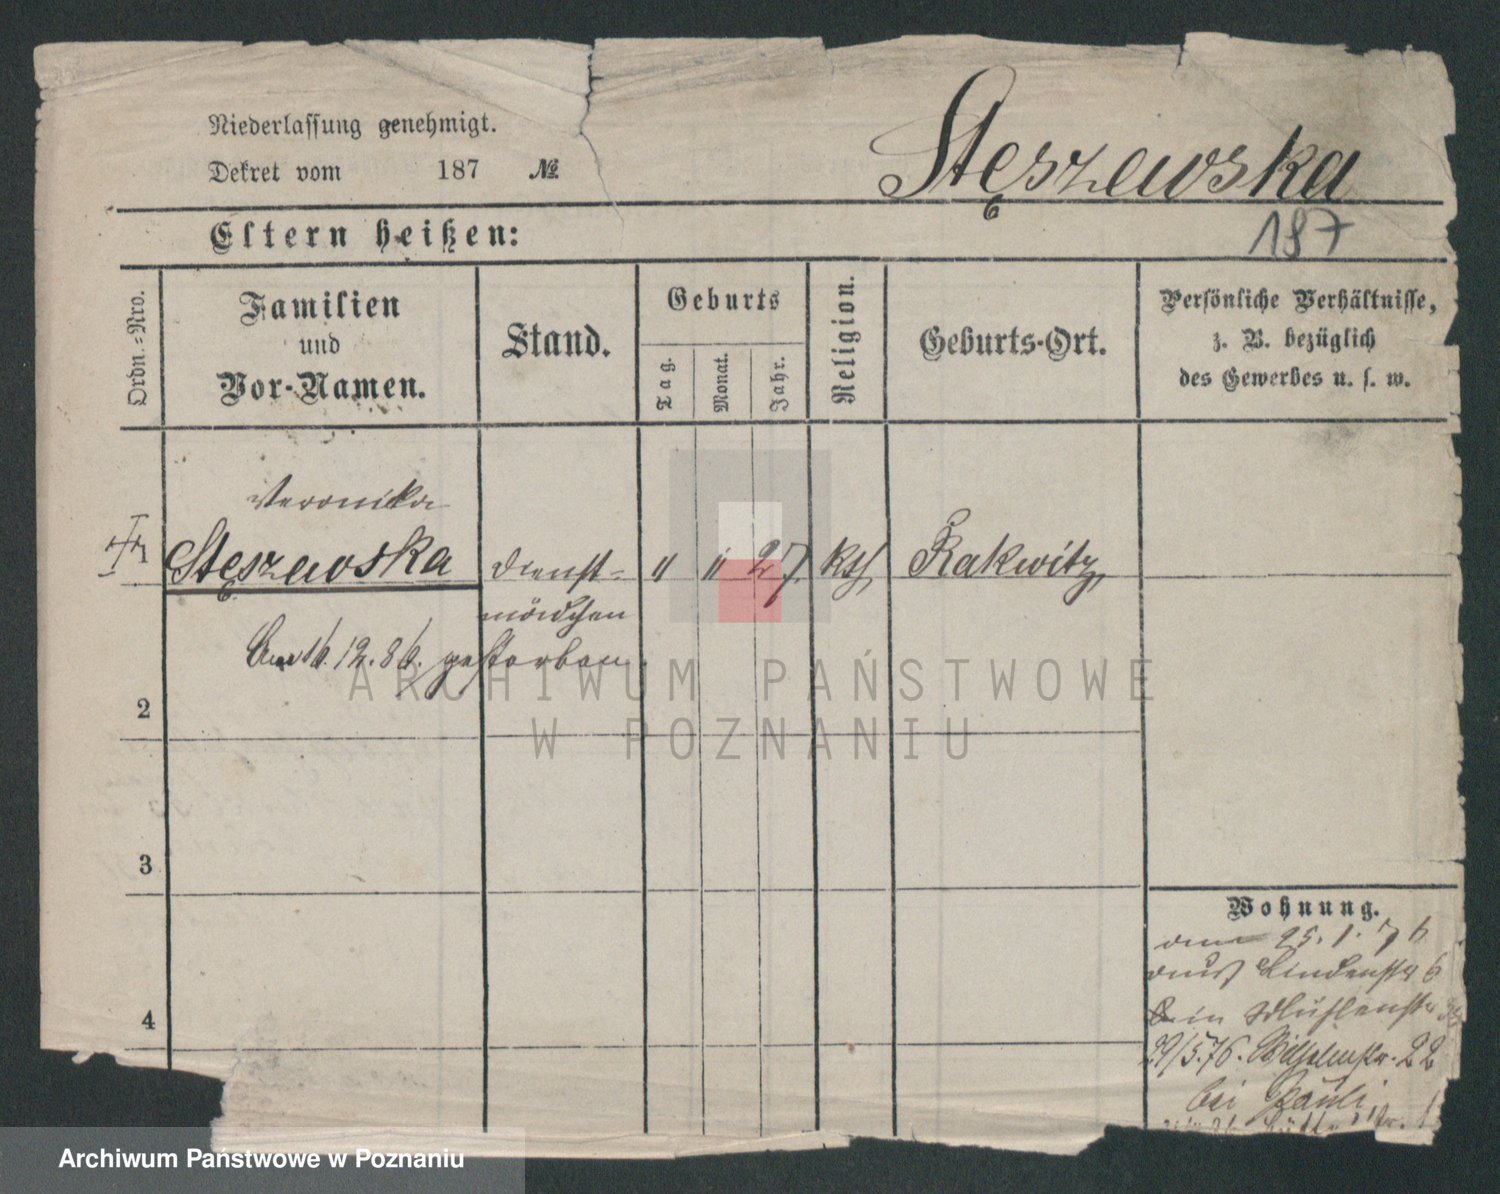 Niederlassung genehmigt.
Dekret vom 187 №
Stęszewska
187
Eltern heißen:
Ordn.-Nro.
Familien
und
Vor-Namen.
Stand.
Geburts
Tag.
Monat.
Jahr.
Religion.
Geburts-Ort.
Persönliche Verhältnisse,
z. B. bezüglich
des Gewerbes u. s. w.
Veronika
1 Stęszewska Dienst- " " 27. kth Rakwitz
mädchen
Am 16.12.86. gestorben.
2
3
4
Wohnung.
25.1.76
Lindenstr 6
in Mühlenstr
29/5.76. Wilhelmstr. 22
bei Pauli
ARCHIWUM PAŃSTWOWE
W POZNANIU
Archiwum Państwowe w Poznaniu